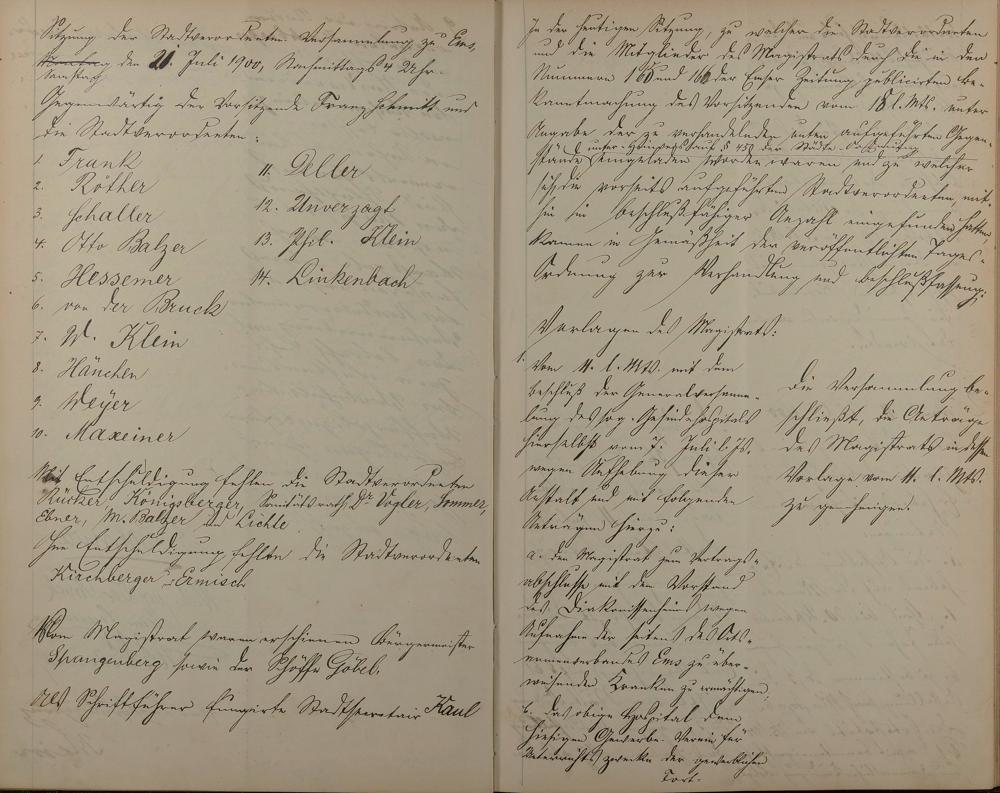 Sitzung der Stadtverordneten-Versammlung zu Ems,
Samstag den 21. Juli 1900, Nachmittags 4 Uhr.
Gegenwärtig der Vorsitzende Franz Schmitt und
die Stadtverordneten:
1. Frank
2. Röther
3. Schaller
4. Otto Balzer
5. Hessemer
6. von der Bruck
7. W. Klein
8. Hänchen
9. Weyer
10. Maxeiner
11. Deller
12. Unverzagt
13. Phil. Klein
14. Linkenbach
Mit Entschuldigung fehlen die Stadtverordneten
Rücker, Königsberger, Sanitätsrath Dr. Vogler, Sommer,
Ebner, M. Balzer und Lichte
Ohne Entschuldigung fehlten die Stadtverordneten
Kirchberger, Ermisch
Vom Magistrat waren erschienen Bürgermeister
Spangenberg sowie der Schöffe Göbel.
Als Schriftführer fungirte Stadtsecretair Kaul
In der heutigen Sitzung, zu welcher die Stadtverordneten
und die Mitglieder des Magistrats durch die in den
Nummern 165 und 166 der Emser Zeitung publicirten Be-
kanntmachung des Vorsitzenden vom 18. l. Mts. unter
Angabe der zu verhandelnden unten aufgeführten Gegen-
stände unter § 45 der Städte-Ordnung
eingeladen worden waren und zu welcher
sich die vorseits aufgeführten Stadtverordneten mit-
hin in beschlußfähiger Anzahl eingefunden hatten,
kamen in Gemäßheit der veröffentlichten Tages-
Ordnung zur Verhandlung und Beschlußfassung:
Vorlagen des Magistrats:
1. Vom 11. l. Mts. mit dem
Beschluß der Generalversamm-
lung des sog. Gesindehospitals
hierselbst vom 7. Juli l. Js.
wegen Aufhebung dieser
Anstalt und mit folgenden
Anträgen hierzu:
a. den Magistrat zum Vertrags-
abschlusse mit dem Vorstand
des Diakonissenheims wegen
Aufnahme der seitens des Orts-
armenverbandes Ems zu über-
weisenden Kranken zu ermächtigen,
b. das obige Hospital dem
hiesigen Gewerbe-Verein für
Unterrichtszwecke der gewerblichen
Fort-
Die Versammlung be-
schließt, die Anträge
des Magistrats in dessen
Vorlage vom 11. l. Mts.
zu genehmigen.